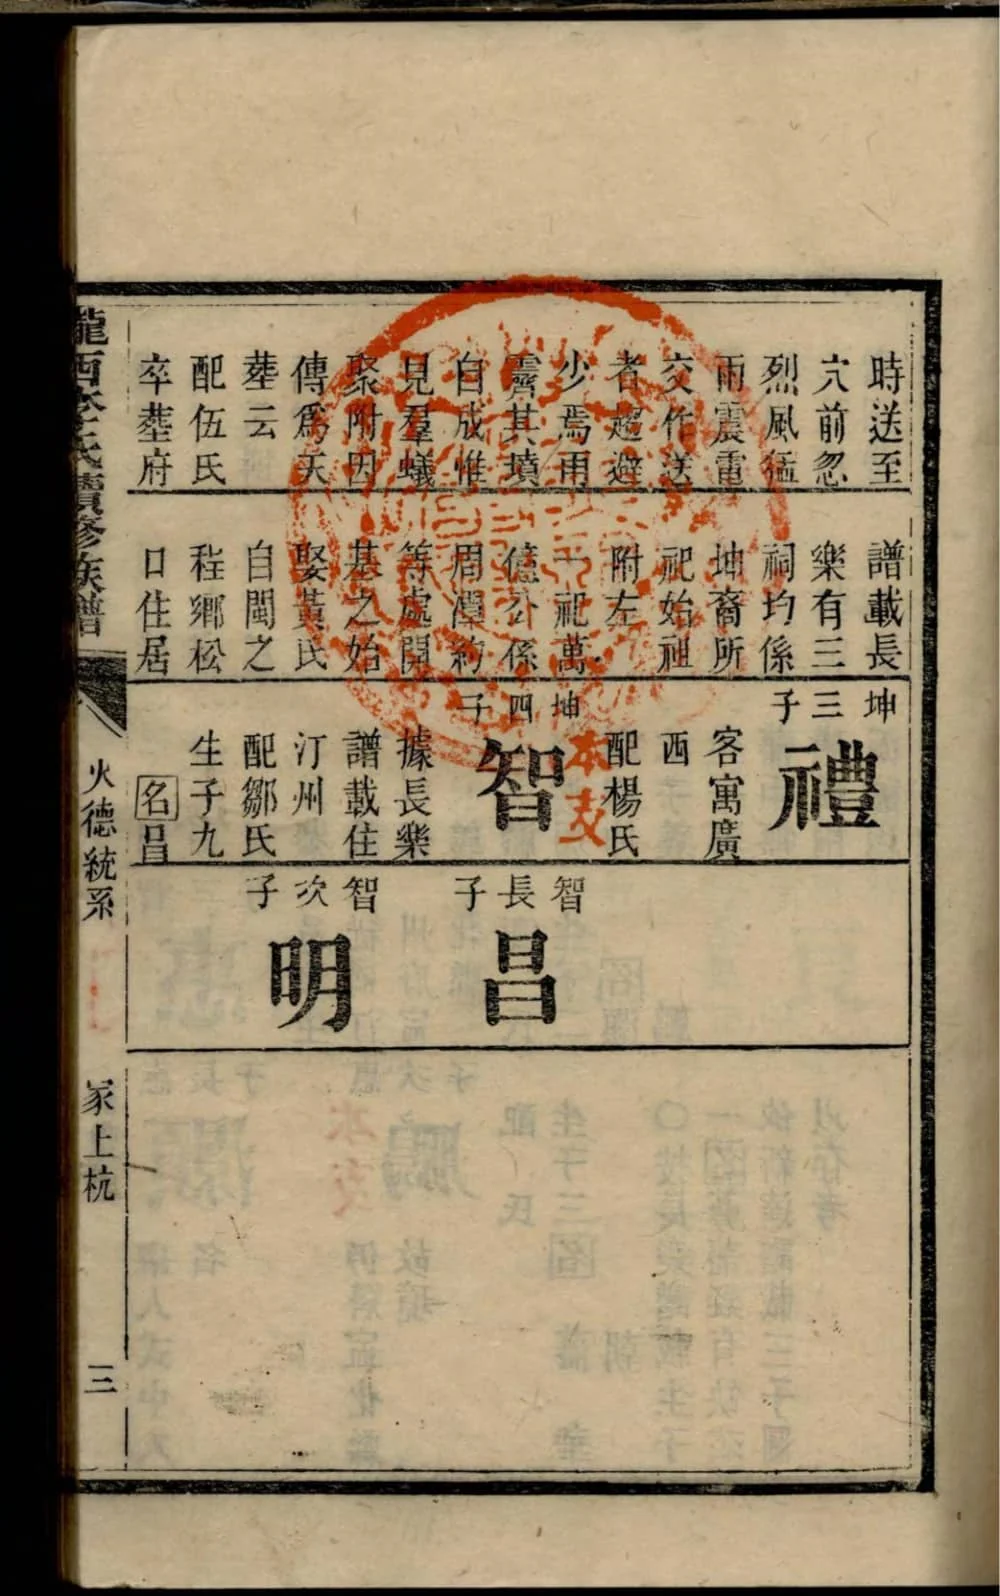 時送至
穴前忽
烈風猛
雨震電
交作送
者趨避
少焉雨
霽其墳
自成惟
見羣蟻
聚附因
傳爲天
塟云
配伍氏
卒塟府
譜載長
樂有三
祠均係
坤裔所
祀始祖
附左
一祀萬
億公係
周潭約
等處開
基之始
娶黃氏
自閩之
程鄉松
口住居
坤三子
禮
客寓廣
西
配楊氏
坤四子
本支
智
據長樂
譜載住
汀州
配鄒氏
生子九
名昌
智長子
昌
智次子
明
隴西李氏續修族譜
火德統系
家上杭
三